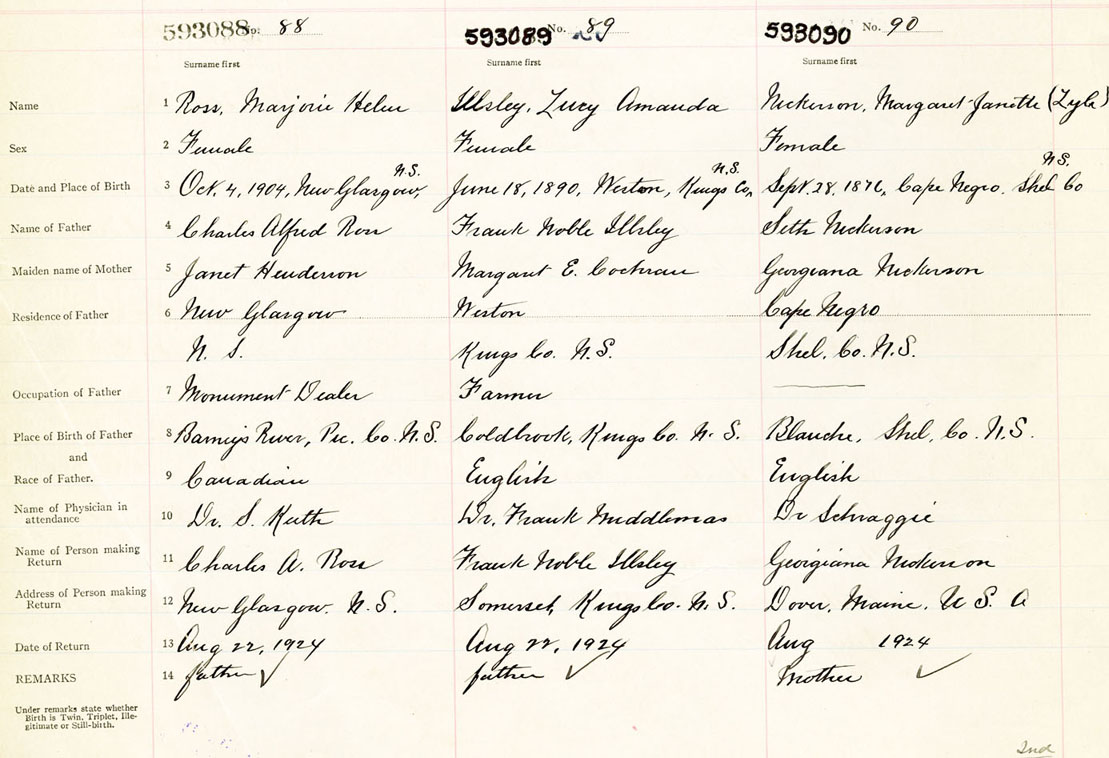 593088 No. 88 593089 No. 89 593090 No. 90
Surname first Surname first Surname first
Name 1 Ross, Marjorie Helen Illsley, Lucy Amanda Nickerson, Margaret Janette (Zyla)
Sex 2 Female Female Female
N.S. N.S. N.S.
Date and Place of Birth 3 Oct. 4, 1904, New Glasgow, June 18, 1890, Weston, Kings Co, Sept. 28. 1876, Cape Negro. Shel Co
Name of Father 4 Charles Alfred Ross Frank Noble Illsley Seth Nickerson
Maiden name of Mother 5 Janet Henderson Margaret E. Cochran Georgiana Nickerson
Residence of Father 6 New Glasgow Weston Cape Negro
N. S. Kings Co. N.S. Shel. Co. N.S.
Occupation of Father 7 Monument Dealer Farmer
Place of Birth of Father 8 Barneys River, Pic. Co. N.S. Coldbrook, Kings Co. N. S. Blanche, Shel. Co. N.S.
and
Race of Father. 9 Canadian English English
Name of Physician in attendance 10 Dr. S. Keith Dr. Frank Middlemas Dr
Name of Person making Return 11 Charles A. Ross Frank Noble Illsley Georgiana Nickerson
Address of Person making Return 12 New Glasgow. N.S. Somerset, Kings Co. N.S. Dover, Maine. U S. A
Date of Return 13 Aug 22, 1924 Aug 22, 1924 Aug 1924
REMARKS 14 father ✓ father ✓ mother ✓
Under remarks state whether
Birth is Twin, Triplet, Ille-
gitimate or Still-birth.
2nd